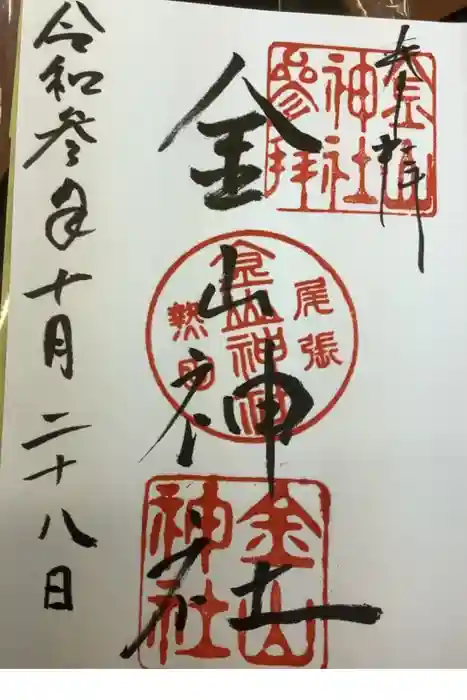 奉拝
金山
神社
參拝
金山神社
尾張
金山神社
熱田
金山
神社
令和参年十月二十八日